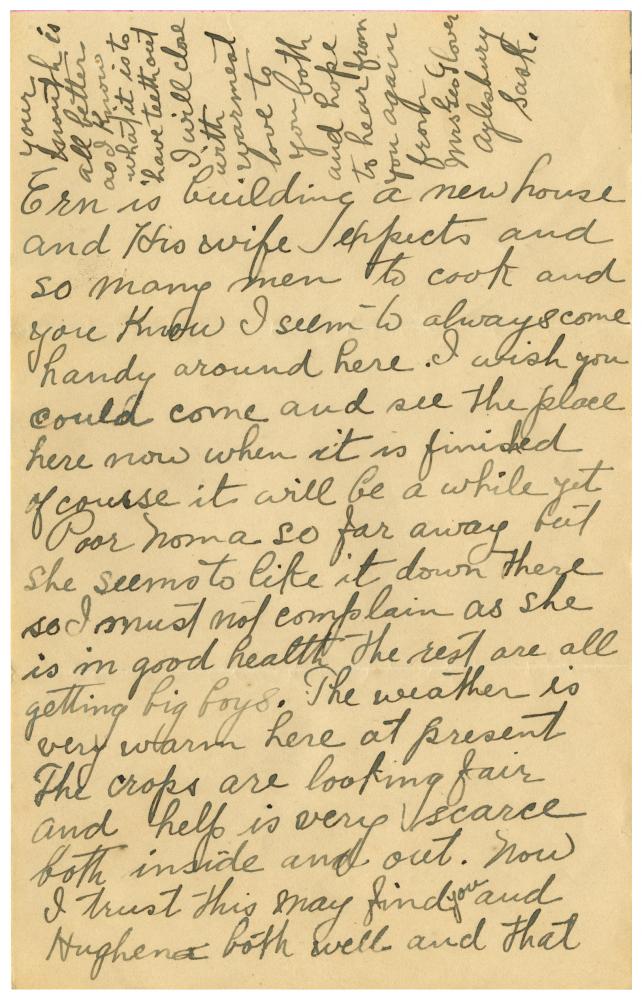 Ern is building a new house
and His wife expects and
so many men to cook and
you Know I seem to always come
handy around here. I wish you
could come and see the place
here now when it is finished
of course it will be a while yet
Poor Noma so far away but
she seems to like it down there
so I must not complain as she
is in good health the rest are all
getting big boys. The weather is
very warm here at present
The crops are looking fair
and help is very scarce
both inside and out. Now
I trust this may find you and
Hughena both well and that
your
mouth is
all better
as I know
what it is to
have teeth out
I will close
with
warmest
love to
you both
and hope
to hear from
you again
from
Mrs Geo Glover
Aylesbury
Sask.